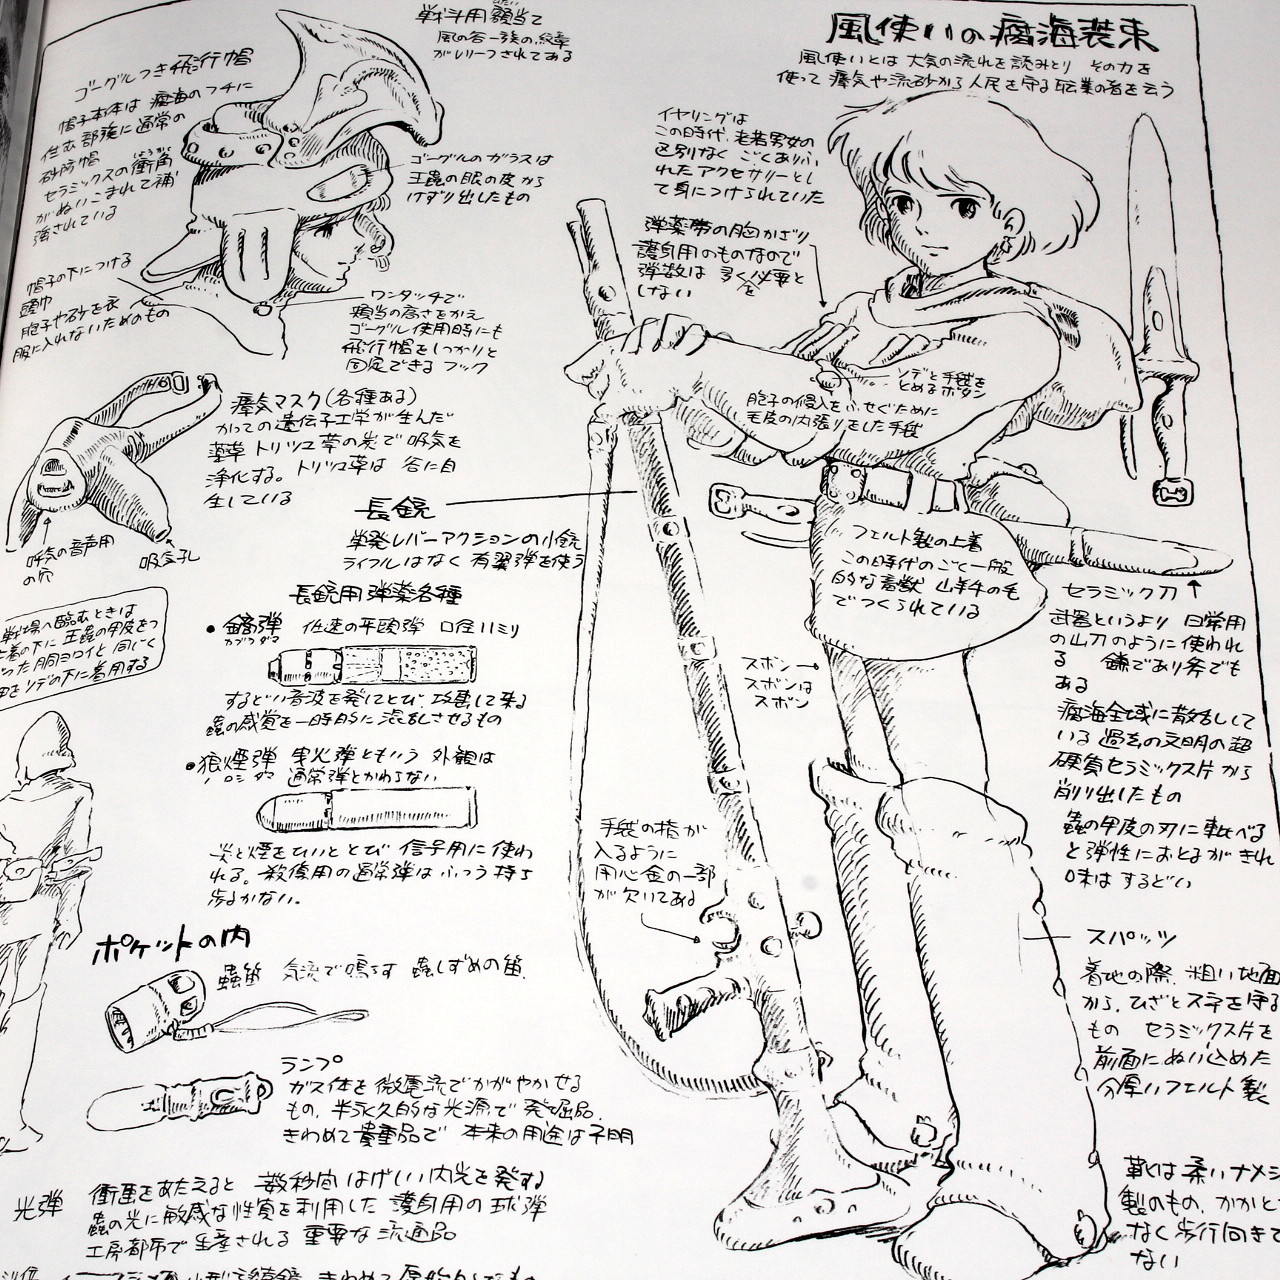 風使いの腐海装束
風使いとは 大気の流れを読みとり その力を
使って 瘴気や流砂から人民を守る職業の者を云う
戦斗用額当て
風の谷一族の紋章
がレリーフされてある
ゴーグルつき飛行帽
帽子本体は 腐海のフチに
住む部落に通常の
砂防帽
セラミックスの衝角
がぬいこまれて補
強されている
ゴーグルのガラスは
王蟲の眼の皮から
けずり出したもの
帽子の下につける
頭巾
胞子や砂を衣
服に入れないためのもの
ワンタッチで
頬当の高さをかえ
ゴーグル使用時にも
飛行帽をしっかりと
固定できるフック
イヤリングは
この時代、老若男女の
区別なく ごくありふ
れたアクセサリーとし
て身につけられていた
弾薬帯の胸かざり
護身用のものなので
弾数は 多くを必要と
しない
ソデと手袋を
とめるボタン
胞子の侵入をふせぐために
毛皮の内張りをした手袋
瘴気マスク(各種ある)
かつての遺伝子工学が生んだ
薬草 トリツコ草の炭で吸気を
浄化する。トリツコ草は 谷に自
生している
呼気の音声用
の穴
吸気孔
長銃
単発レバーアクションの小銃
ライフルはなく 有翼弾を使う
長銃用弾薬各種
●鏑弾 低速の平頭弾 口径11ミリ
カブラダマ
するどい音波を発してとび、攻撃して来る
蟲の感覚を一時的に混乱させるもの
●狼煙弾 曳光弾ともいう 外観は
ロシダマ 通常弾とかわらない
炎と煙をひいてとび 信号用に使わ
れる。殺傷用の通常弾はふつう持ち
歩かない。
戦場へ臨むときは
上着の下に 王蟲の甲皮をつ
かった胴ヨロイと 同じく
甲をソデの下に着用する
フェルト製の上着
この時代のごく一般
的な着獣 山羊牛の毛
でつくられている
ズボン→
ズボンは
ズボン
セラミック刀
武器というより 日常用
の山刀のように使われ
る 鎌であり斧でも
ある
腐海全域に散乱して
いる 過去の文明の超
硬質セラミックス片から
削り出したもの
蟲の甲皮の刃に較べる
と弾性におとるがきれ
味はするどい
手袋の指が
入るように
用心金の一部
が欠いてある
ポケットの内
蟲笛 気流で鳴らす 蟲しずめの笛
ランプ
ガス体を微電流でかがやかせる
もの、半永久的な光源で 発掘品、
きわめて貴重品で 本来の用途は不明
光弾 衝撃をあたえると 数秒間はげしい閃光を発する
蟲の光に敏感な性質を利用した 護身用の球弾
工房都市で生産される 重要な流通品
スパッツ
着地の際、粗い地面
から、ひざとスネを守る
もの セラミックス片を
前面にぬい込めた
分厚いフェルト製
靴は柔いナメシ
製のもの、かかと
なく歩行向きで
ない